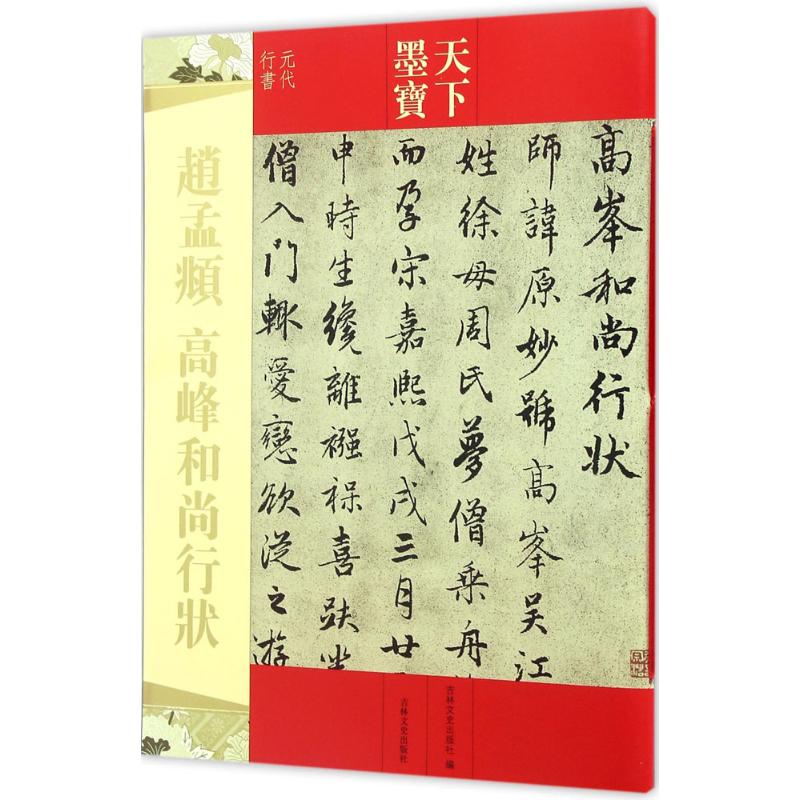 天下
墨寶
元代
行書
趙孟頫 高峰和尚行狀
高峯和尚行狀
師諱原妙號高峯吴江
姓徐母周氏夢僧乘舟
而孕宋嘉熙戊戌三月廿
申時生纔離襁褓喜趺坐
僧入門輒愛戀欲从之游
吉林文史出版社 編
吉林文史出版社